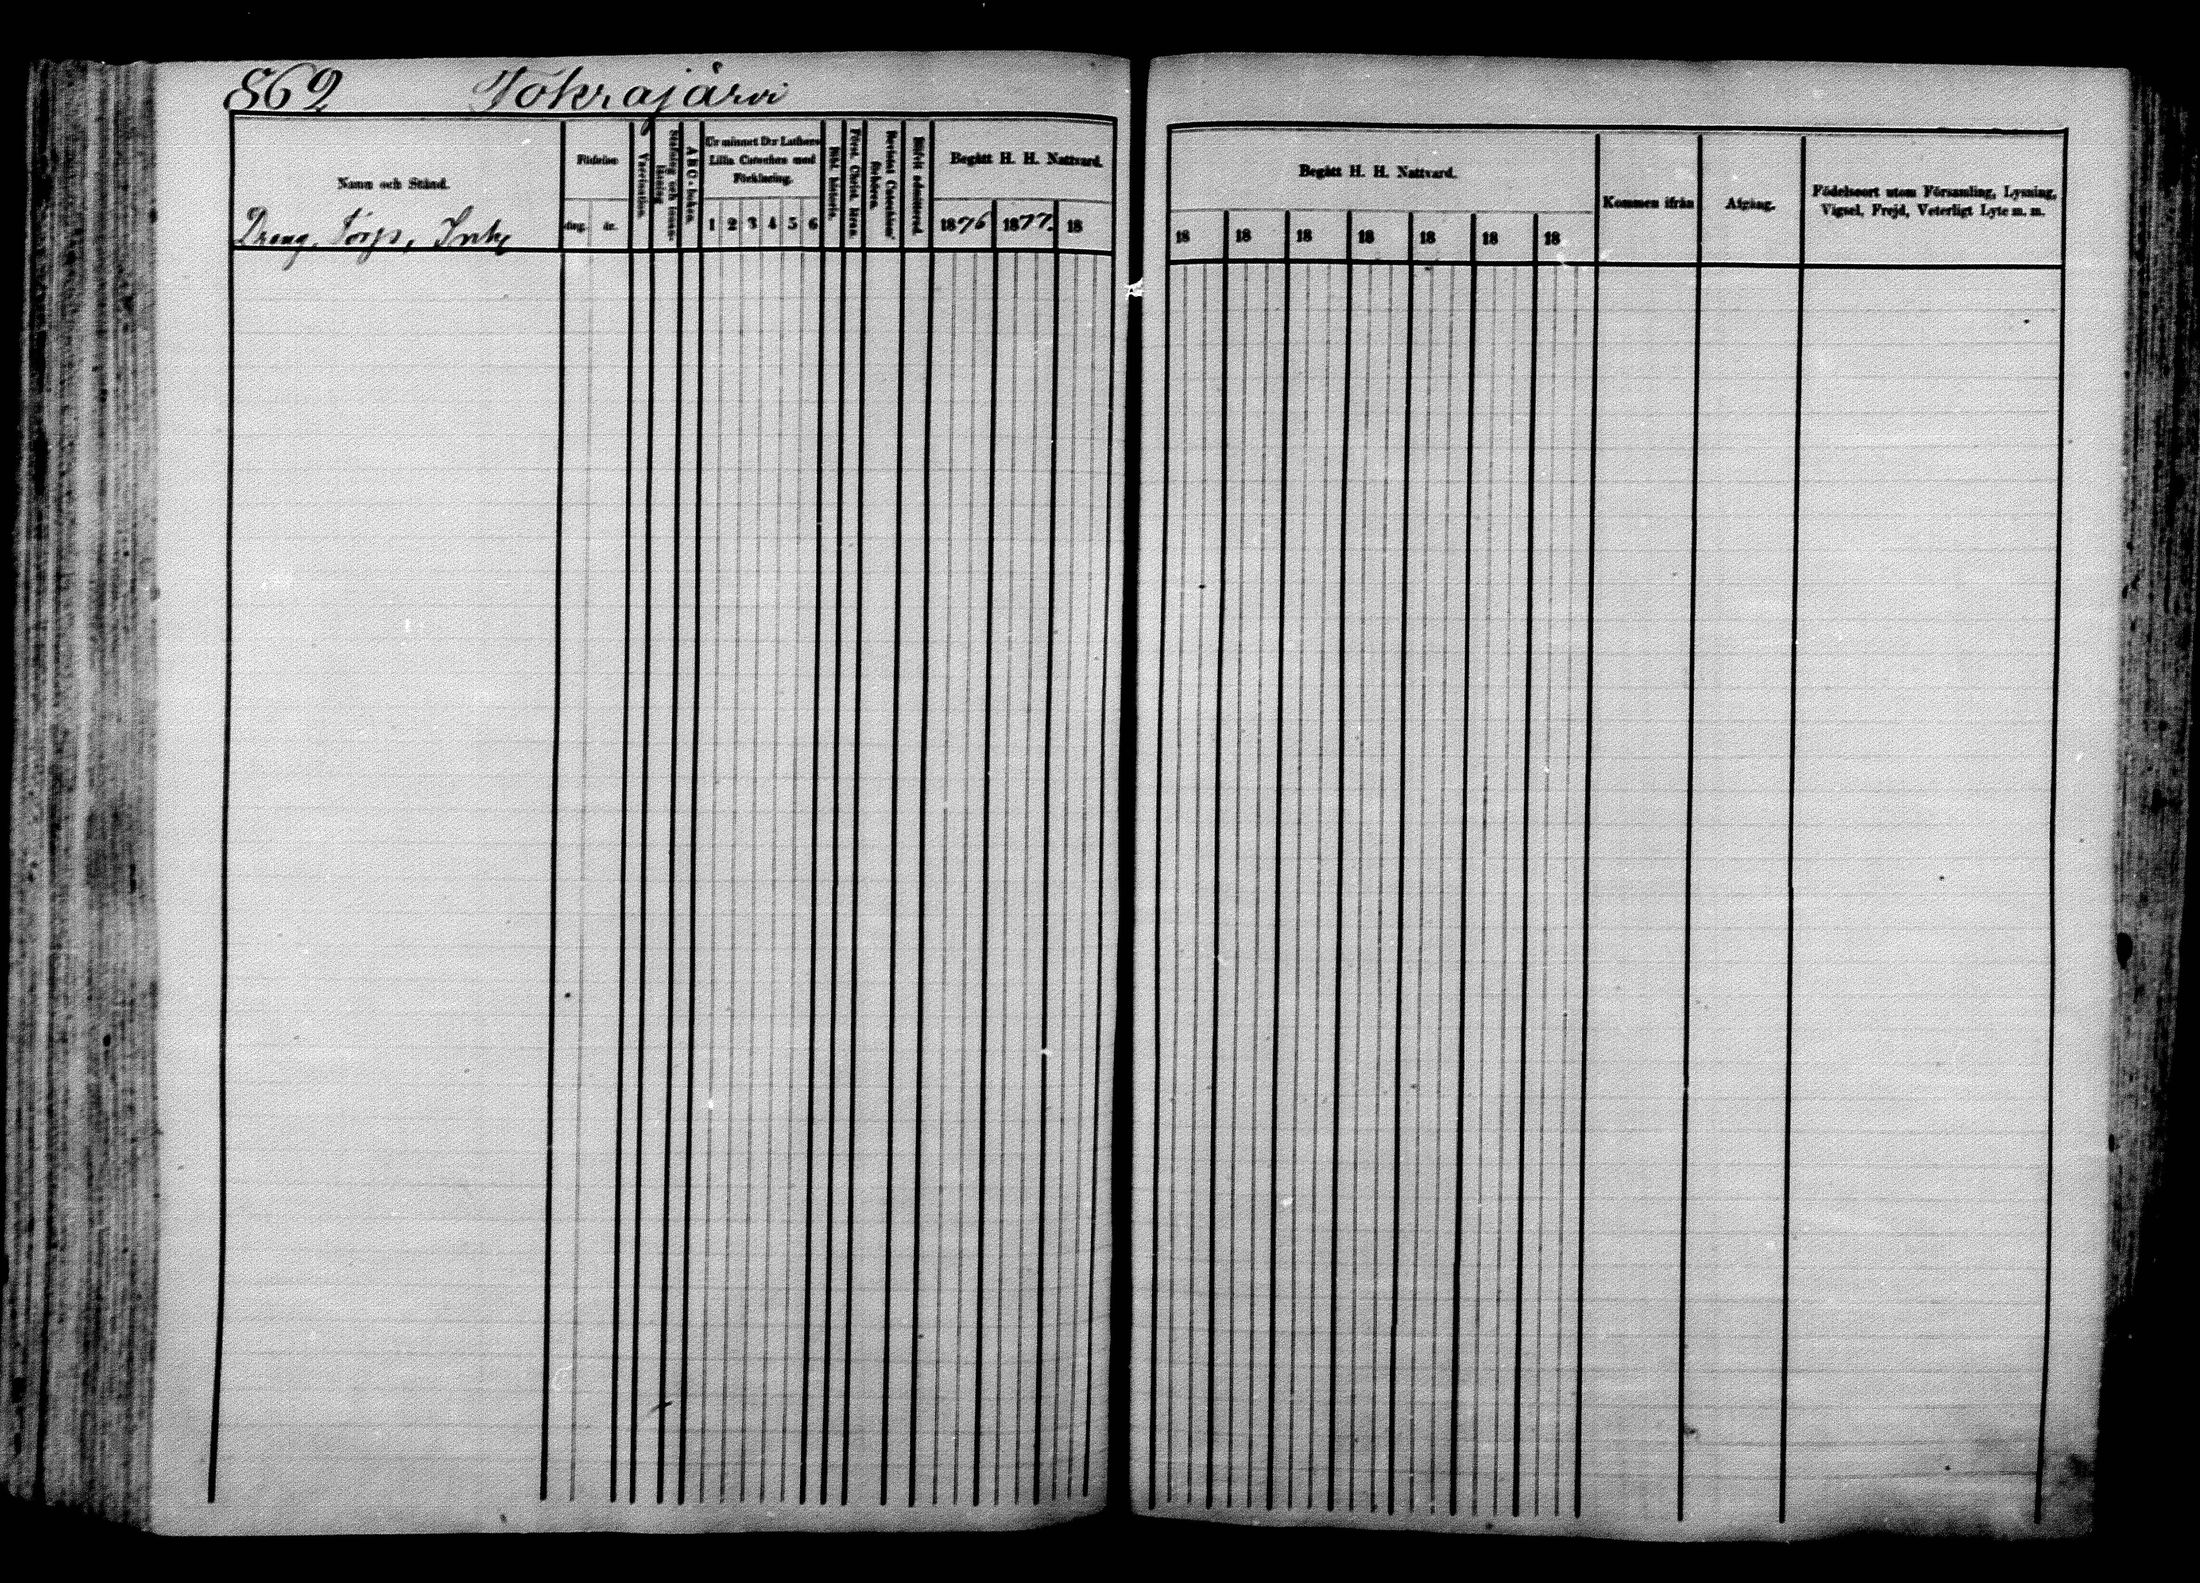 862 Tokrajärvi
Namn och Stånd.
Dreng, Torp, Inh,
Födelse
dag. år.
Vaccination.
Stafning och innan-läsning
A B C-boken.
Ur minnet D:r Luthers
Lilla Cateches med
Förklaring.
1 2 3 4 5 6
Bibl. historia.
Först. Christ. läran.
Bevistat Catechismi förhören.
Blifvit admitterad.
Begått H. H. Nattvard.
1876 1877. 18
Begått H. H. Nattvard.
18 18 18 18 18 18 18
Kommen ifrån
Afgång.
Födelseort utom Församling, Lysning,
Vigsel, Frejd, Veterligt Lyte m. m.